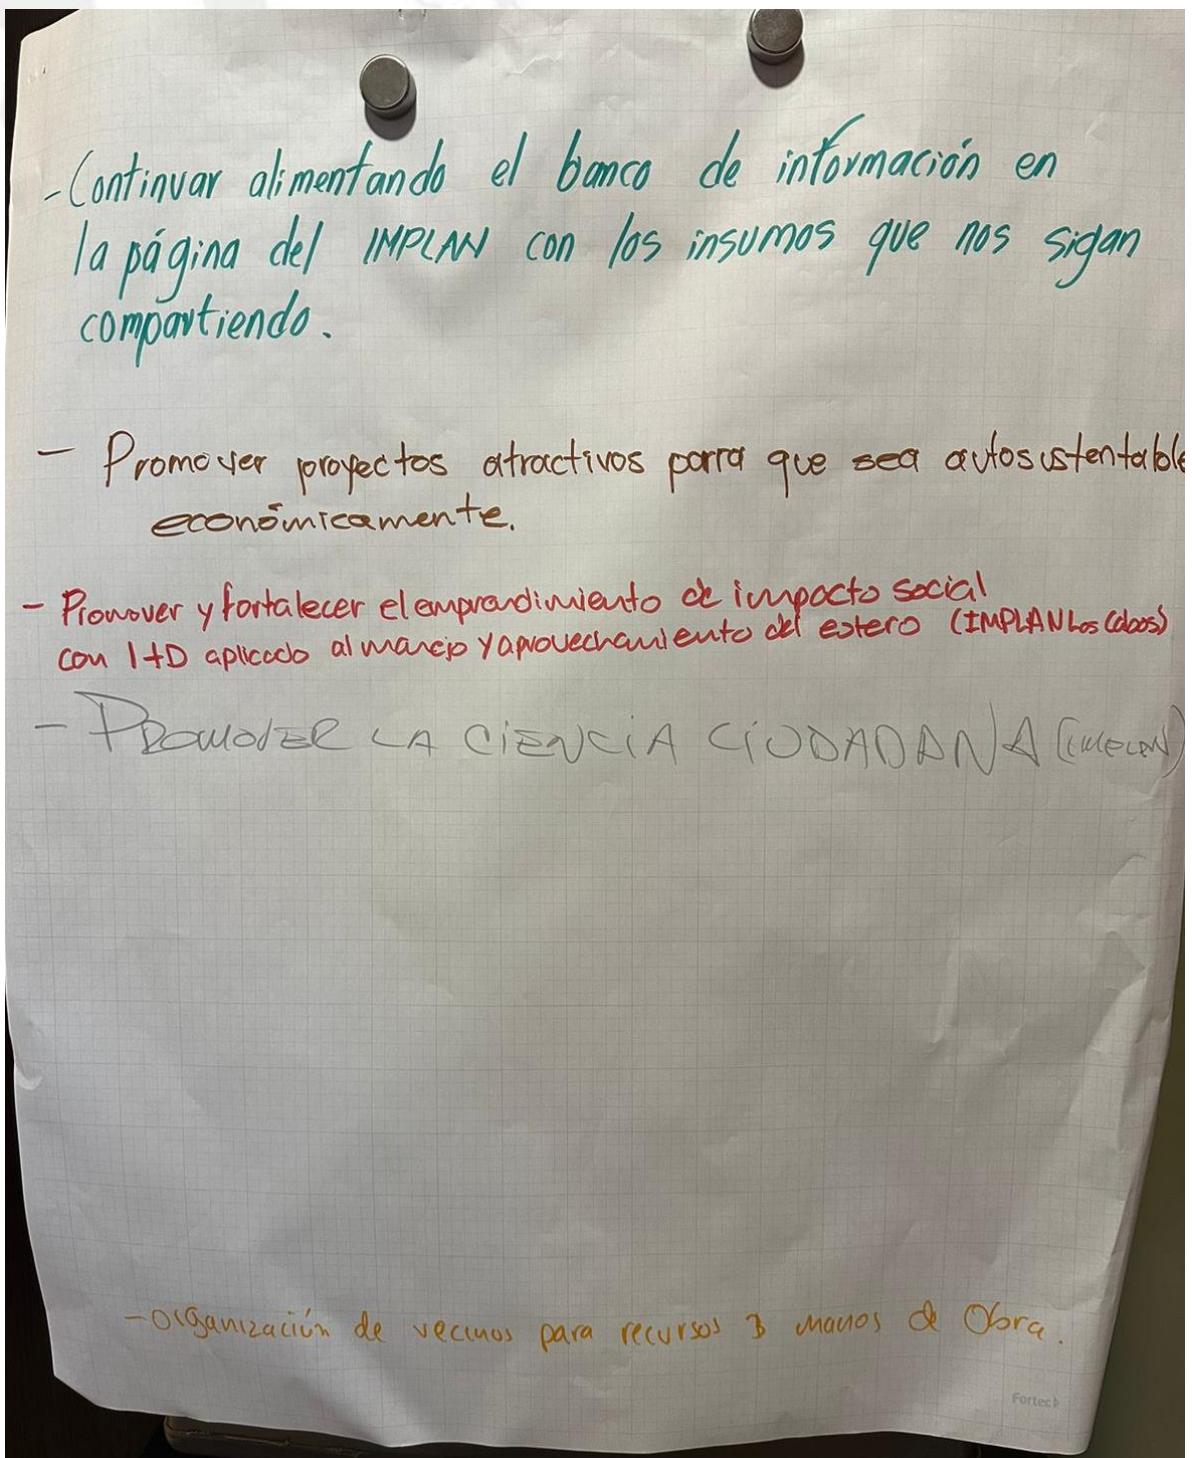 - Continuar alimentando el banco de información en
la página del IMPLAN con los insumos que nos sigan
compartiendo.
- Promover proyectos atractivos para que sea autosustentable
económicamente.
- Promover y fortalecer el emprendimiento de impacto social
con I+D aplicado al manejo y aprovechamiento del estero (IMPLAN Los Cabos)
- PROMOVER LA CIENCIA CIUDADANA (IMPLAN)
- Organización de vecinos para recursos y manos de Obra.
Fortec